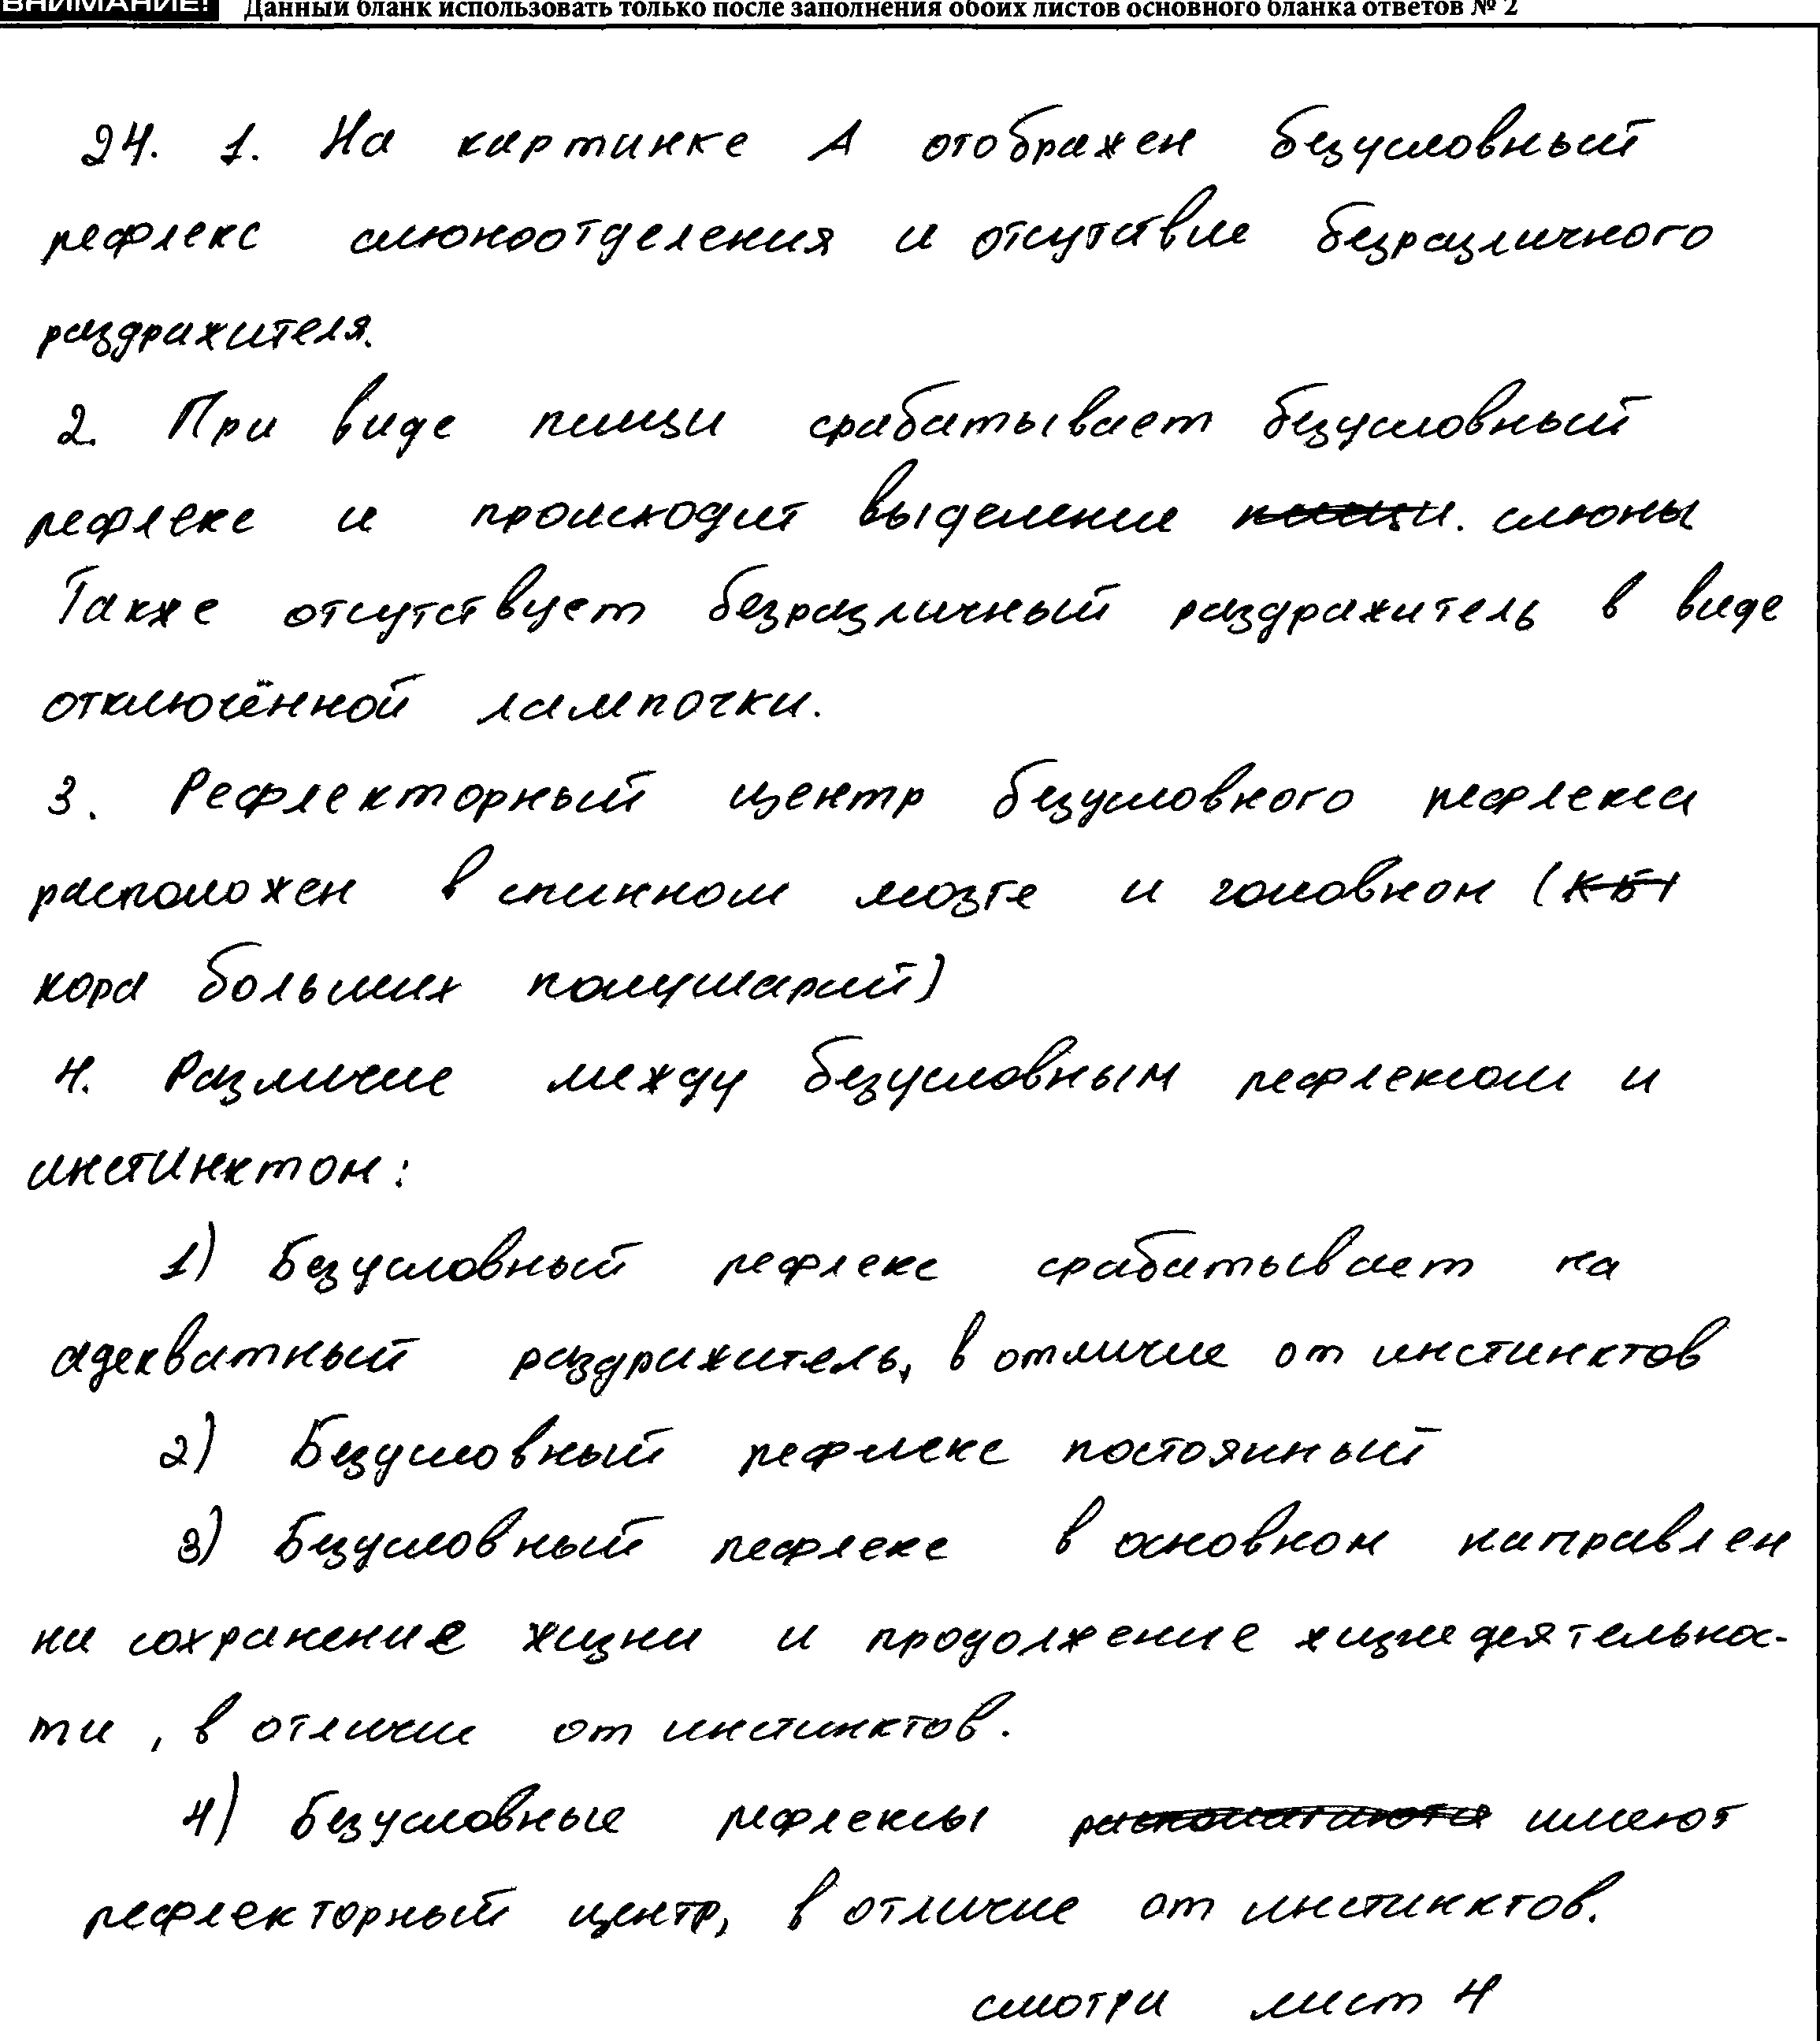 ВНИМАНИЕ! Данный бланк использовать только после заполнения обоих листов основного бланка ответов № 2
24. 1. На картинке А отображен безусловный
рефлекс слюноотделения и отсутствие безразличного
раздражителя.
2. При виде пищи срабатывает безусловный
рефлекс и происходит выделение пищи. слюны
Также отсутствует безразличный раздражитель в виде
отключённой лампочки.
3. Рефлекторный центр безусловного рефлекса
расположен в спинном мозге и головном (КБ
кора больших полушарий)
4. Различие между безусловным рефлексом и
инстинктом:
1) Безусловный рефлекс срабатывает на
адекватный раздражитель, в отличие от инстинктов
2) Безусловный рефлекс постоянный
3) Безусловный рефлекс в основном направлен
на сохранение жизни и продолжение жизнедеятельнос-
ти, в отличии от инстинктов.
4) Безусловные рефлексы располагаются имеют
рефлекторный центр, в отличие от инстинктов.
смотри лист 4